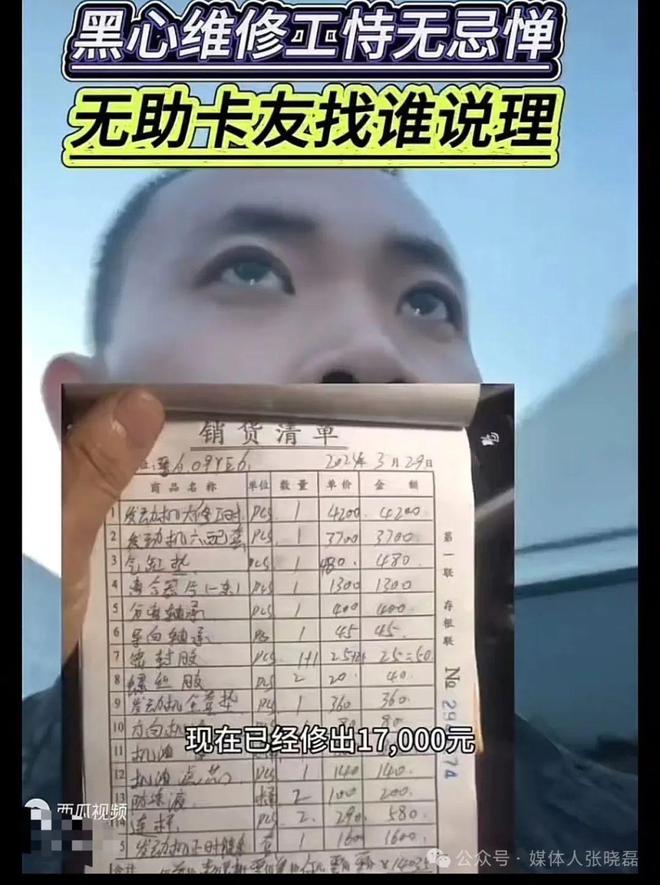 黑心维修工恃无忌惮
无助卡友找谁说理
销货清单
2024年3月29日
商品名称 单位 数量 单价 金额
1 发动机大修工时 PCS 1 4200 4200
2 发动机六配套 PCS 1 3700 3700
3 气缸垫 PCS 1 480 480
4 离合器片(一套) PCS 1 1300 1300
5 分离轴承 PCS 1 400 400
6 导向轴承 PCS 1 45 45
7 密封胶 PCS 1+1 25 25=50
8 螺丝胶 PCS 2 20 40
9 发动机全车垫 PCS 1 360 360
10 方向机 80 80
11 机油
12 机油滤芯 PCS 1 140 140
13 防冻液 桶 2 100 200
14 连杆 PCS 2 290 580
5 发动机 1 1600 1600
第一联 存根联
No 29 74
现在已经修出17,000元
西瓜视频
公众号·媒体人张晓磊